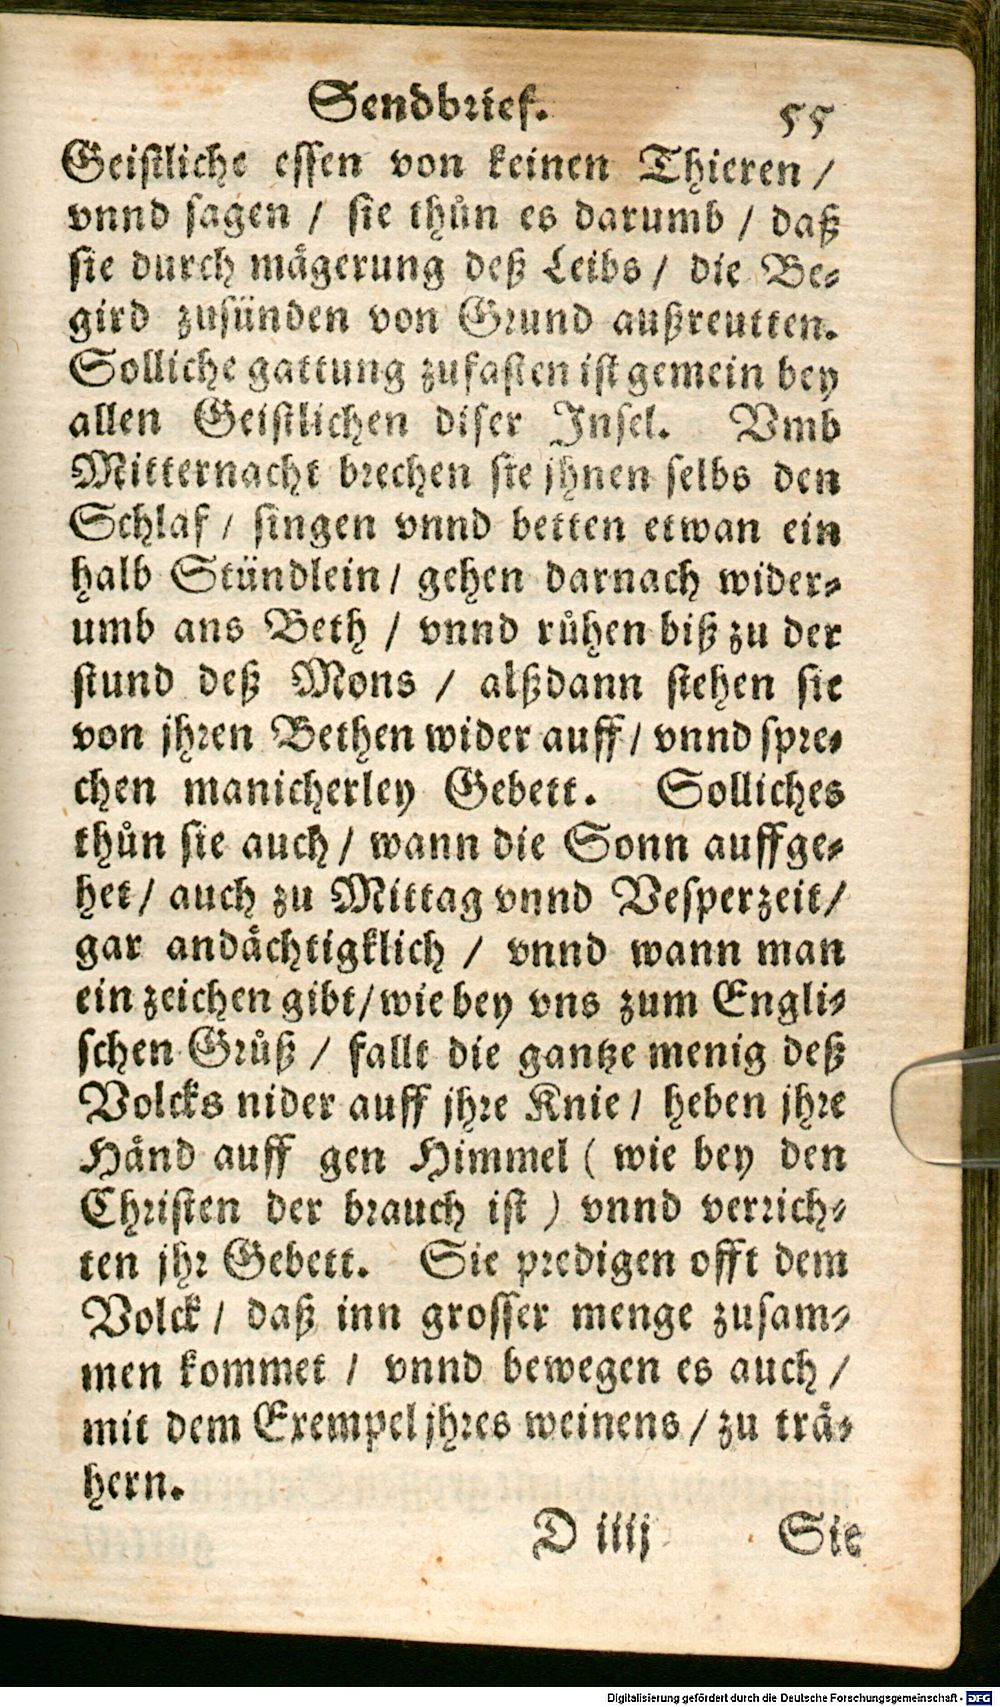 Sendbrief. 55
Geistliche essen von keinen Thieren /
vnnd sagen / sie thůn es darumb / daß
sie durch mågerung deß Leibs / die Be-
gird zusünden von Grund außreutten.
Solliche gattung zufasten ist gemein bey
allen Geistlichen diser Insel. Vmb
Mitternacht brechen sie jhnen selbs den
Schlaf / singen vnnd betten etwan ein
halb Stündlein / gehen darnach wider-
umb ans Beth / vnnd růhen biß zu der
stund deß Mons / alßdann stehen sie
von jhren Bethen wider auff / vnnd spre-
chen manicherley Gebett. Solliches
thůn sie auch / wann die Sonn auffge-
het / auch zu Mittag vnnd Vesperzeit /
gar andåchtigklich / vnnd wann man
ein zeichen gibt / wie bey vns zum Engli-
schen Grůß / fallt die gantze menig deß
Volcks nider auff jhre Knie / heben jhre
Hånd auff gen Himmel ( wie bey den
Christen der brauch ist ) vnnd verrich-
ten jhr Gebett. Sie predigen offt dem
Volck / daß inn grosser menge zusam-
men kommet / vnnd bewegen es auch /
mit dem Exempel jhres weinens / zu trå-
hern.
D iiij Sie
Digitalisierung gefördert durch die Deutsche Forschungsgemeinschaft - DFG